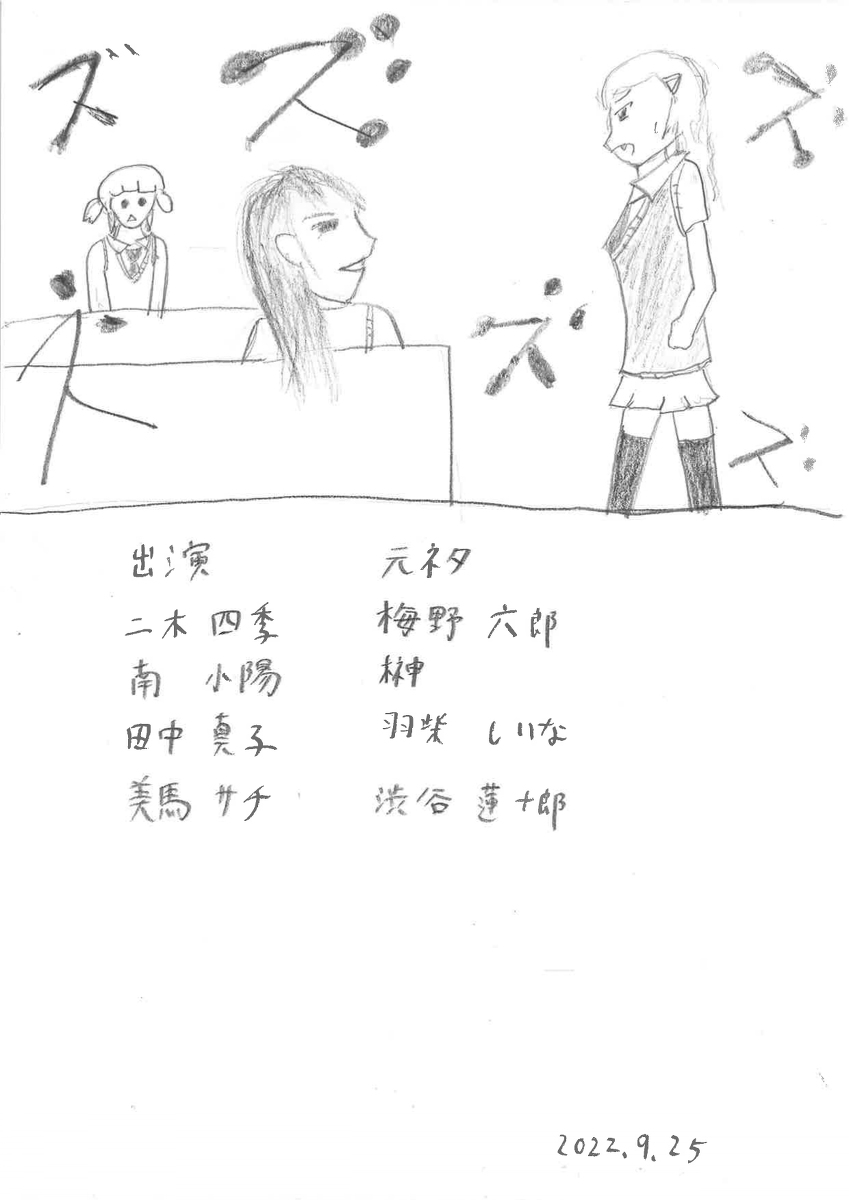 ズ ズ ズ
ズ ズ ズ
出演 元ネタ
二木 四季 梅野 六郎
南 小陽 榊
田中 真子 羽柴 しいな
美馬 サチ 渋谷 蓮十郎
2022.9.25